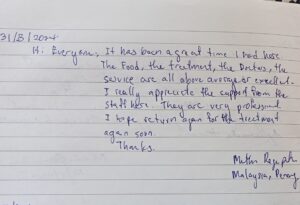 31/8/2024
Hi Everyone, It has been a great time I had here
The Food, the treatment, the Doctors, the
service are all above average or excellent.
I really appreciate the support from the
staff here. They are very professional
I hope return again for the treatment
again soon.
Thanks.
Muthu
Malaysia, Penang